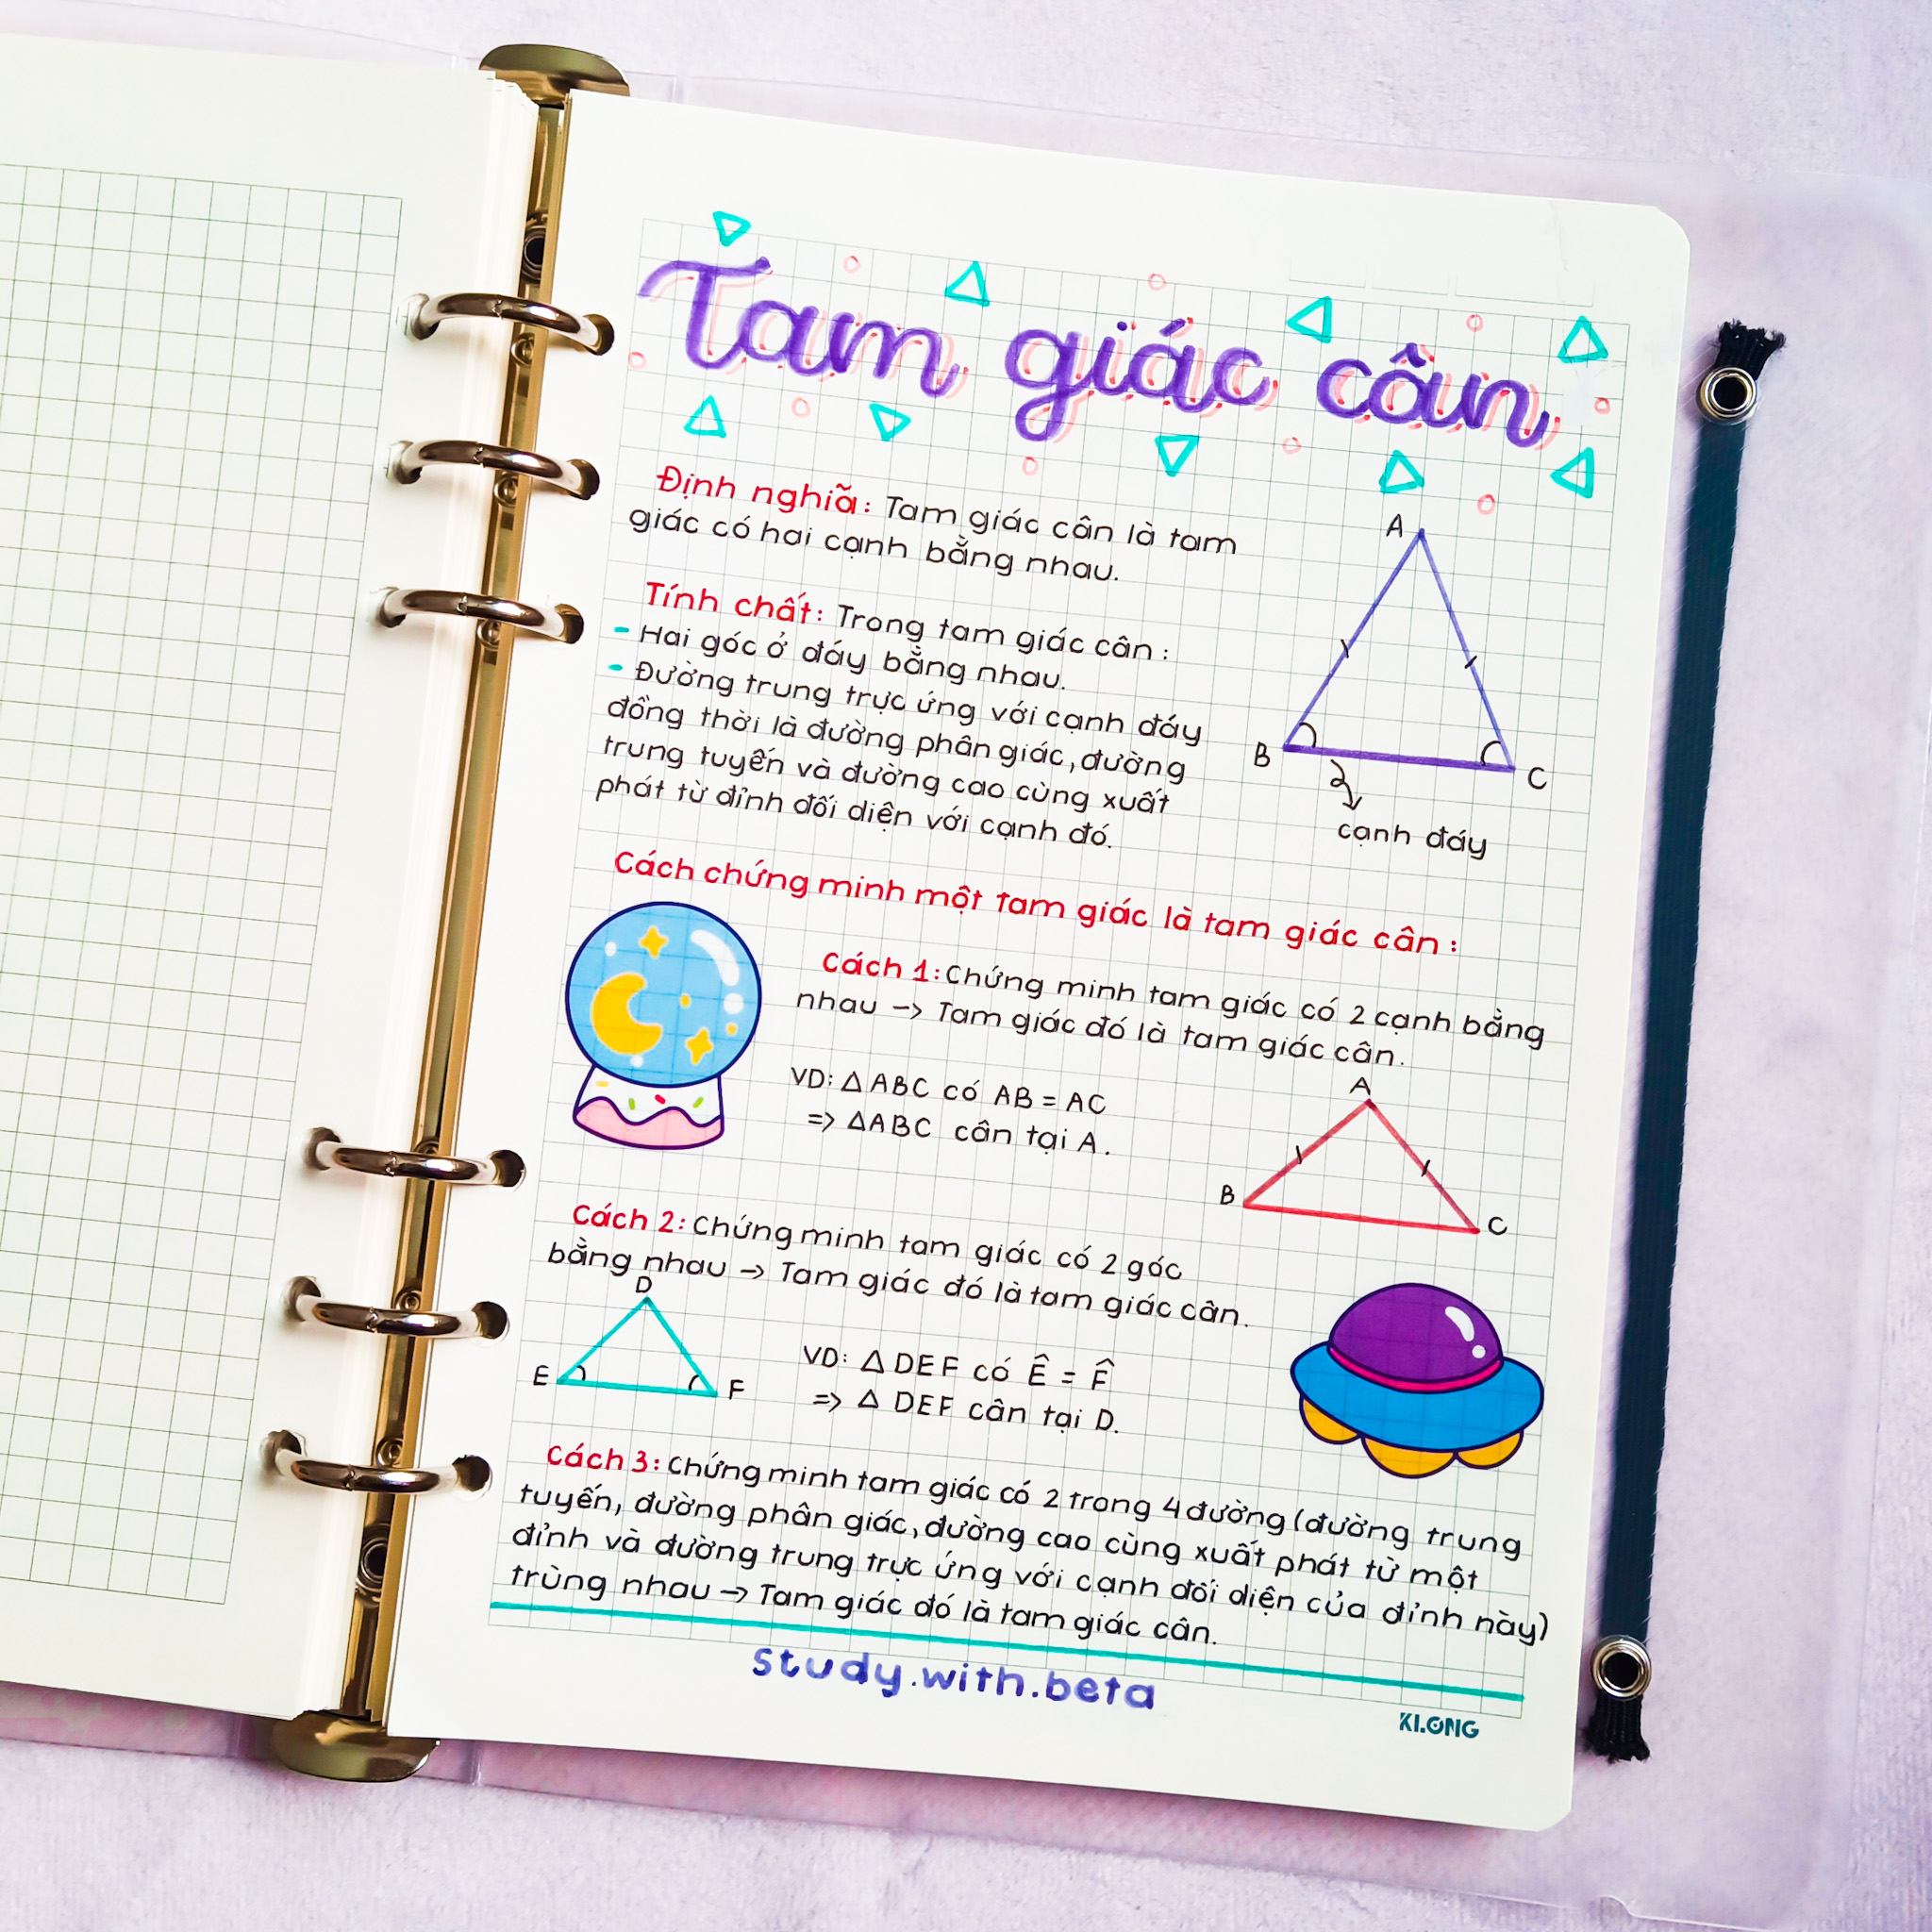 Tam giác cân
Định nghĩa: Tam giác cân là tam
giác có hai cạnh bằng nhau.
A
B
C
cạnh đáy
Tính chất: Trong tam giác cân:
- Hai góc ở đáy bằng nhau.
- Đường trung trực ứng với cạnh đáy
đồng thời là đường phân giác, đường
trung tuyến và đường cao cùng xuất
phát từ đỉnh đối diện với cạnh đó.
Cách chứng minh một tam giác là tam giác cân:
Cách 1: Chứng minh tam giác có 2 cạnh bằng
nhau -> Tam giác đó là tam giác cân.
VD: △ABC có AB = AC
=> △ABC cân tại A.
A
B
C
Cách 2: Chứng minh tam giác có 2 góc
bằng nhau -> Tam giác đó là tam giác cân.
D
E
F
VD: △DEF có Ê = F̂
=> △DEF cân tại D.
Cách 3: Chứng minh tam giác có 2 trong 4 đường (đường trung
tuyến, đường phân giác, đường cao cùng xuất phát từ một
đỉnh và đường trung trực ứng với cạnh đối diện của đỉnh này)
trùng nhau -> Tam giác đó là tam giác cân.
study.with.beta
KLONG